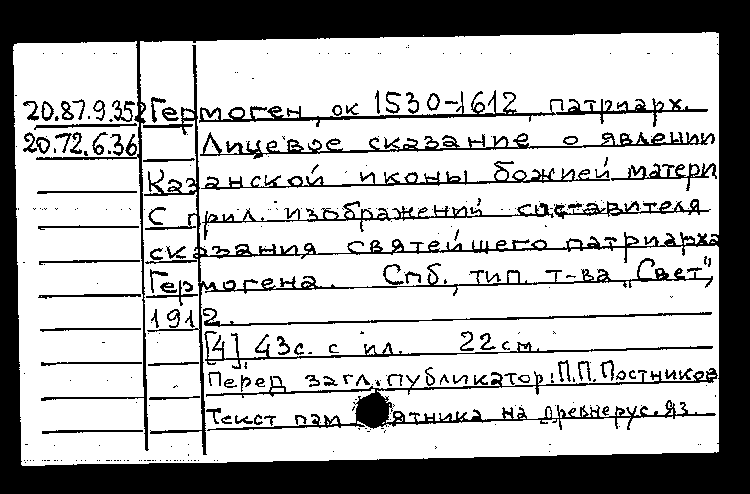 20.87.9.352 Гермоген, ок 1530-1612, патриарх.
20.72.6.36 Лицевое сказание о явлении
Казанской иконы божией матери
С прил. изображений составителя
сказания святейшего патриарха
Гермогена. Спб., тип. т-ва „Свет",
1912.
[4], 43с. с ил. 22см.
Перед загл. публикатор: П.П. Постников
Текст памятника на древнерус. яз.